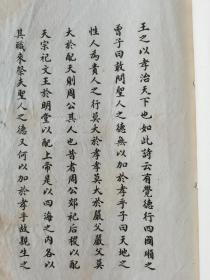 王之以孝治天下也如此詩云有覺德行四國順之
曾子曰敢問聖人之德無以加於孝乎子曰天地之
性人為貴人之行莫大於孝孝莫大於嚴父嚴父莫
大於配天則周公其人也昔者周公郊祀后稷以配
天宗祀文王於明堂以配上帝是以四海之內各以
其職來祭夫聖人之德又何以加於孝乎故親生之